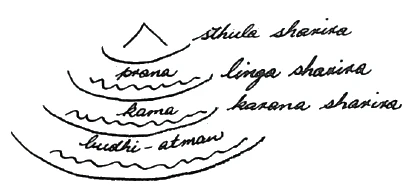 sthula sharira
prana linga sharira
kama karana sharira
budhi-atman